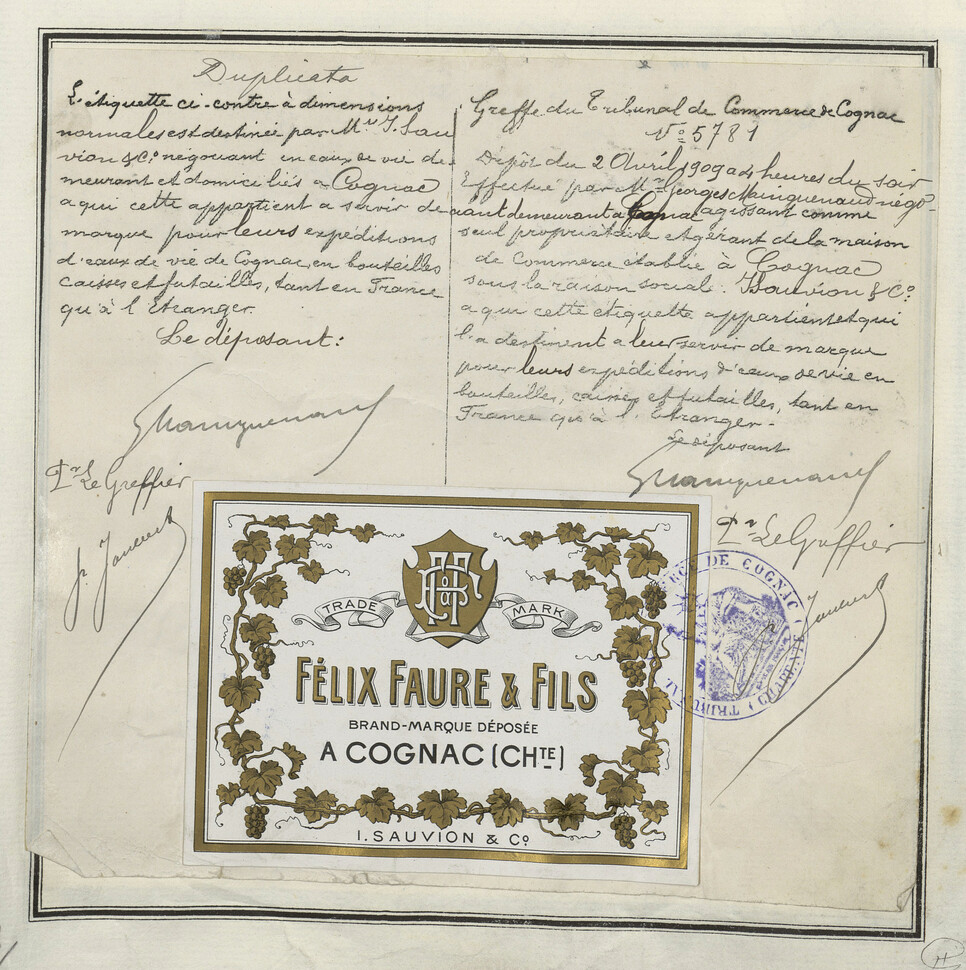 Duplicata
L'étiquette ci-contre à dimensions
normales est destinée par Mrs I. Sau
vion & Co négociant en eaux de vie de
meurant et domiciliés à Cognac
a qui cette appartient a servir de
marque pour leurs expéditions
d'eaux de vie de Cognac, en bouteilles
caisses et futailles, tant en France
qu'à l'Etranger.
Le déposant:
GMainguenaud
Pr Le Greffier
Greffe du Tribunal de Commerce de Cognac
No 5781
Dépôt du 2 Avril 1909 a 4 heures du soir
Effectué par Mr Georges Mainguenaud négo-
ciant demeurant à Cognac agissant comme
seul propriétaire et gérant de la maison
de Commerce établie à Cognac
sous la raison social. I Sauvion & Co.
a qui cette étiquette appartient et qui
l'a destinent a leur servir de marque
pour leurs expéditions d'eaux de vie en
bouteilles, caisses et futailles, tant en
France qu'à l'Etranger.-
Le déposant
GMainguenaud
Pr Le Greffier
TRADE MARK
FÉLIX FAURE & FILS
BRAND-MARQUE DÉPOSÉE
A COGNAC (CHTE)
I. SAUVION & Co
DE COGNAC (CHARENTE) TRIBUNAL